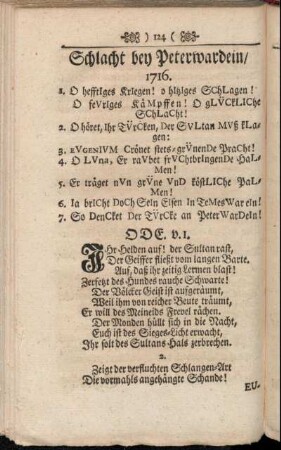 ) 124 (
Schlacht bey Peterwardein/
1716.
1. O hefftIges KrIegen! o hIzIges SChLagen!
O feVrIges KäMpffen! O gLVCkLIChe
SChLaCht!
2. O höret, Ihr TVrCken, Der SVLtan MVß kLa-
gen:
3. EVGENIVM Crönet stets-grVnenDe PraCht!
4. O LVna, Er raVbet frVChtbrIngenDe HaL-
Men!
5. Er träget nVn grVne VnD köstLIChe PaL-
Men!
6. Ia brIcht DVCh SeIn EIsen In TeMesWar eIn!
7. So DenCket Der TürCke an PeterWarDeIn!
ODE. v. I.
IHr-Helden auf! der Sultan rast,
Der Geiffer fliest vom langen Barte.
Auf, daß ihr zeitig Lermen blast!
Zersetzt des Hundes rauche Schwarte!
Der Völcker Geist ist aufgeräumt,
Weil ihm von reicher Beute träumt,
Er will des Meineids Frevel rächen.
Der Monden hüllt sich in die Nacht,
Euch ist des Sieges-Licht erwacht,
Ihr solt des Sultans-Hals zerbrechen.
2.
Zeigt der verfluchten Schlangen-Art
Die vormahls angehängte Schande!
EU-